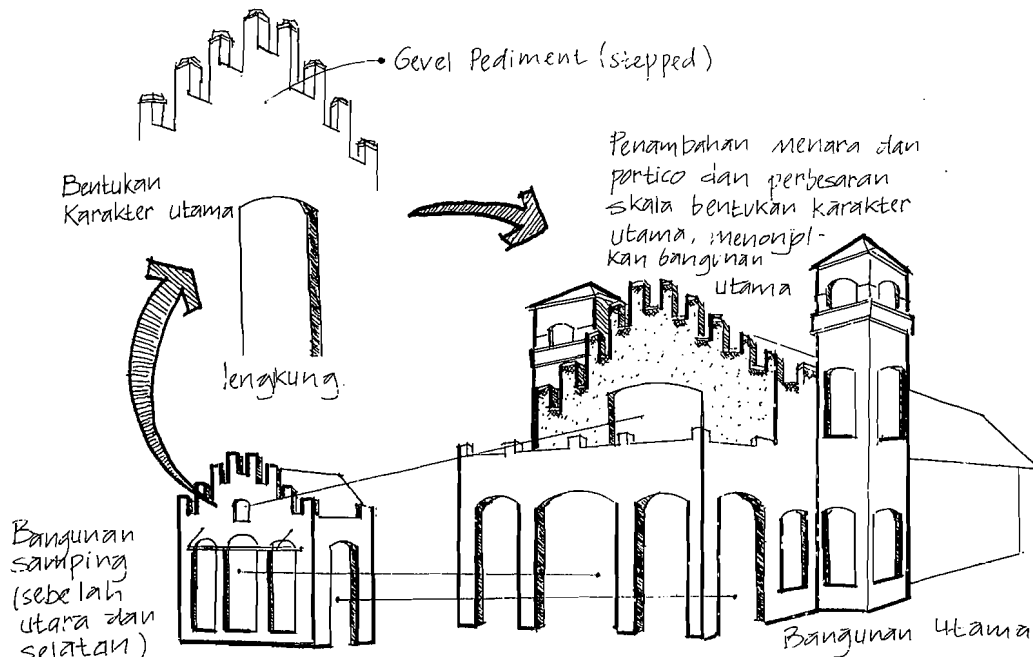 Gevel Pediment (stepped)
Bentukan
Karakter utama
lengkung.
Penambahan menara dan
portico dan perbesaran
skala bentukan karakter
utama, menonjol-
kan bangunan
utama
Bangunan
samping
(sebelah
utara dan
selatan)
Bangunan Utama